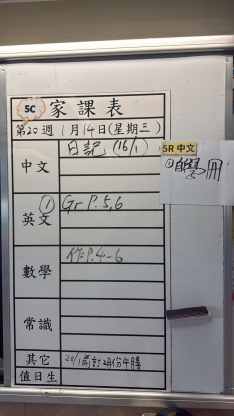 5C 家課表
第20週 1月14日(星期三)
中文 日記 (16/1)
5R 中文
① 自學冊
英文 ① Gr P.5,6
數學 作P.4-6
常識
其它 20/1前訂2月份午膳
值日生